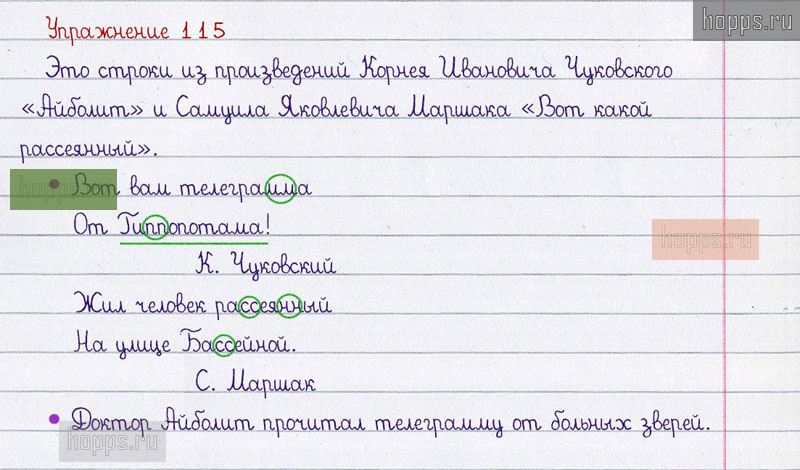 hopps.ru
Упражнение 115
Это строки из произведений Корнея Ивановича Чуковского
«Айболит» и Самуила Яковлевича Маршака «Вот какой
рассеянный».
hopps.ru
• Вот вам телеграмма
От Гиппопотама!
hopps.ru
К. Чуковский
Жил человек рассеянный
На улице Бассейной.
С. Маршак
• Доктор Айболит прочитал телеграмму от больных зверей.
hopps.ru